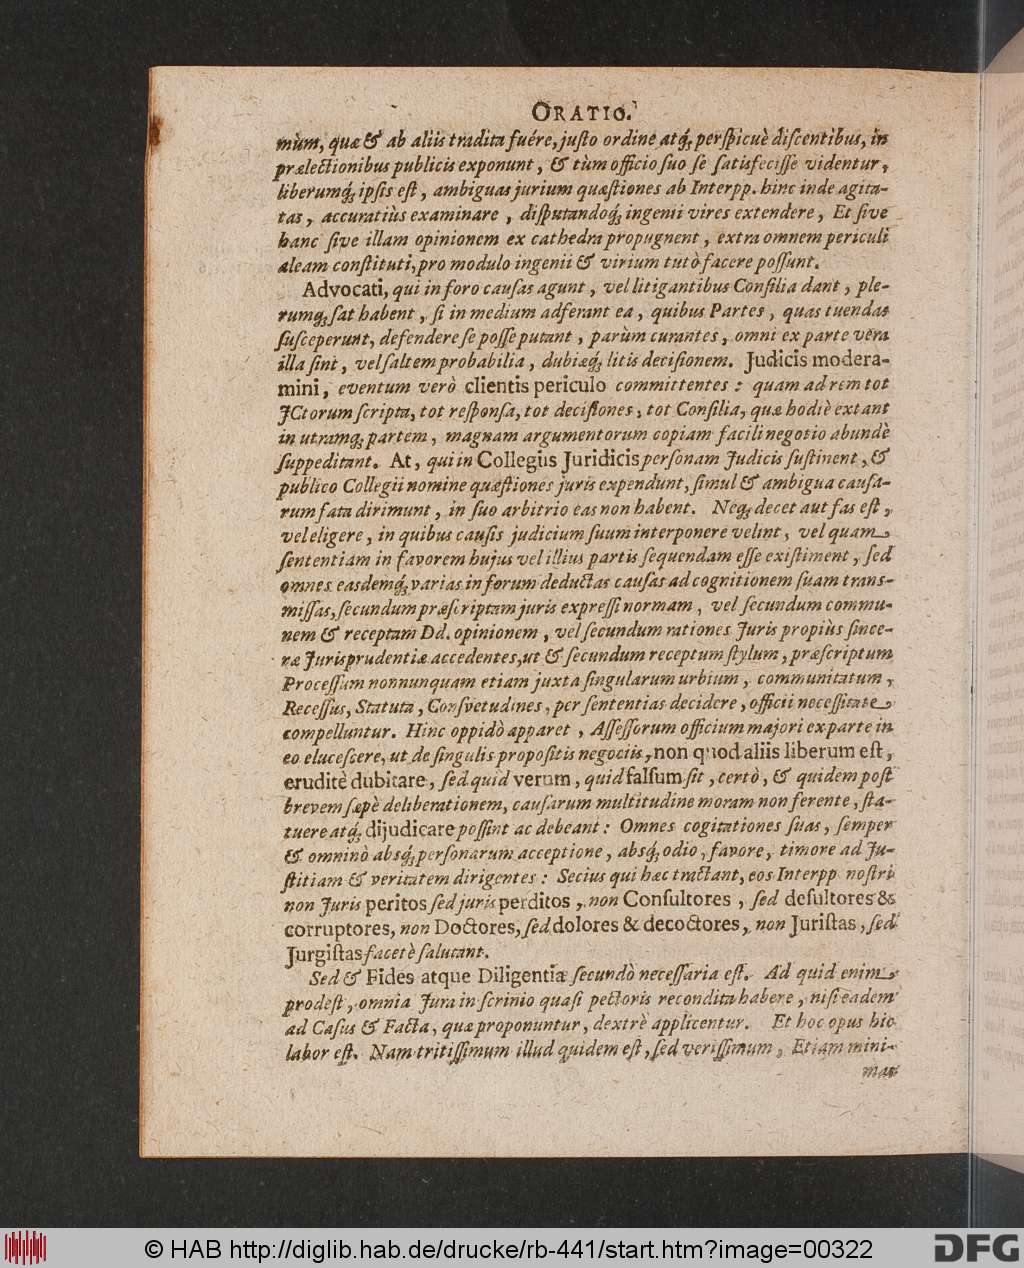 ORATIO.
mùm, quæ & ab aliis tradita fuére, juſto ordine atq́; perſpicuè diſcentibus, in
prælectionibus publicis exponunt, & tùm officio ſuo ſe ſatisfeciſſe videntur,
liberumq́; ipſis eſt, ambiguas jurium quæſtiones ab Interpp. hinc inde agita-
tas, accuratiùs examinare, diſputandoq́; ingenii vires extendere, Et ſive
hanc ſive illam opinionem ex cathedra propugnent, extra omnem periculi
aleam conſtituti, pro modulo ingenii & virium tutò facere poſſunt.
Advocati, qui in foro cauſas agunt, vel litigantibus Conſilia dant, ple-
rumq; ſat habent, ſi in medium adferant ea, quibus Partes, quas tuendas
ſuſceperunt, defendere ſe poſſe putant, parùm curantes, omni ex parte vera
illa ſint, vel ſaltem probabilia, dubiæq́; litis deciſionem. Judicis modera-
mini, eventum verò clientis periculo committentes: quam ad rem tot
JCtorum ſcripta, tot reſponſa, tot deciſiones, tot Conſilia, quæ hodiè extant
in utramq; partem, magnam argumentorum copiam facili negotio abundè
ſuppeditant. At, qui in Collegiis Juridicis perſonam Judicis ſuſtinent, &
publico Collegii nomine quæſtiones juris expendunt, ſimul & ambigua cauſa-
rum fata dirimunt, in ſuo arbitrio eas non habent. Neq; decet aut fas eſt,
vel eligere, in quibus cauſis judicium ſuum interponere velint, vel quam
ſententiam in favorem hujus vel illius partis ſequendam eſſe exiſtiment, ſed
omnes easdemq́; varias in forum deductas cauſas ad cognitionem ſuam trans-
miſſas, ſecundum præſcriptam juris expreſſi normam, vel ſecundum commu-
nem & receptam Dd. opinionem, vel ſecundum rationes Juris propiùs ſince-
ræ Jurisprudentiæ accedentes, ut & ſecundum receptum ſtylum, præſcriptum
Proceſſum nonnunquam etiam juxta ſingularum urbium, communitatum,
Receſſus, Statuta, Conſvetudines, per ſententias decidere, officii neceſſitate
compelluntur. Hinc oppidò apparet, Aſſeſſorum officium majori ex parte in
eo eluceſcere, ut de ſingulis propoſitis negociis, non quod aliis liberum eſt,
eruditè dubitare, ſed quid verum, quid falſum ſit, certò, & quidem poſt
brevem ſæpè deliberationem, cauſarum multitudine moram non ferente, ſta-
tuere atq́; dijudicare poſſint ac debeant: Omnes cogitationes ſuas, ſemper
& omninò absq́; perſonarum acceptione, absq́; odio, favore, timore ad Ju-
ſtitiam & veritatem dirigentes: Secius qui hæc tractant, eos Interpp noſtri
non Juris peritos ſed juris perditos, non Conſultores, ſed deſultores &
corruptores, non Doctores, ſed dolores & decoctores, non Juriſtas, ſed
Jurgiſtas facetè ſalutant.
Sed & Fides atque Diligentia ſecundò neceſſaria eſt. Ad quid enim
prodeſt, omnia Jura in ſcrinio quaſi pectoris recondita habere, niſi eadem
ad Caſus & Facta, quæ proponuntur, dextrè applicentur. Et hoc opus hic
labor eſt. Nam tritiſſimum illud quidem eſt, ſed veriſſimum, Etiam mini-
mas
© HAB http://diglib.hab.de/drucke/rb-441/start.htm?image=00322
DFG